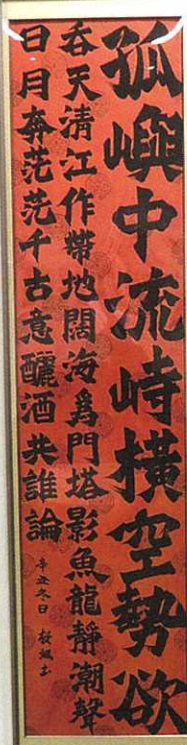 孤嶼中流峙橫空勢欲
吞天清江作帶地闊海為門塔影魚龍靜潮聲
日月奔茫茫千古意釃酒共誰論
辛丑冬日